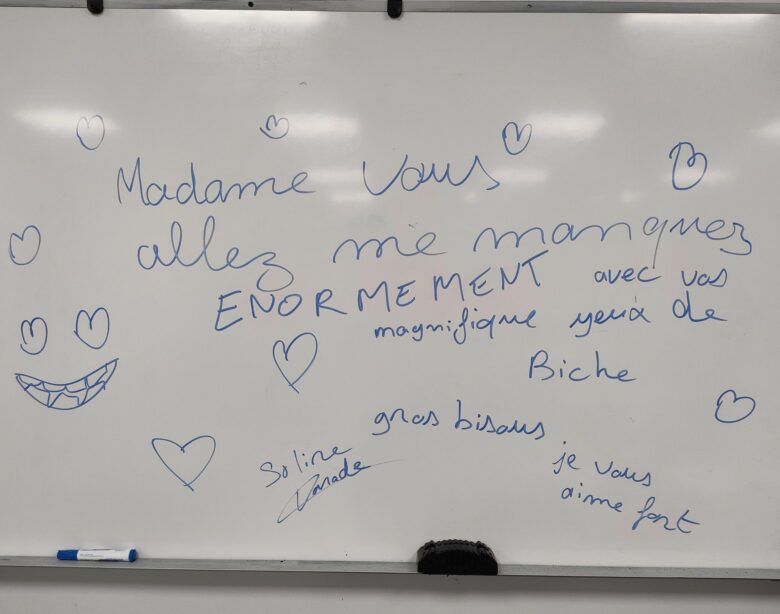 Madame Vous
allez me manquez
ENORMEMENT avec vos
magnifique yeux de
Biche
gros bisous
Soline
je vous
aime fort